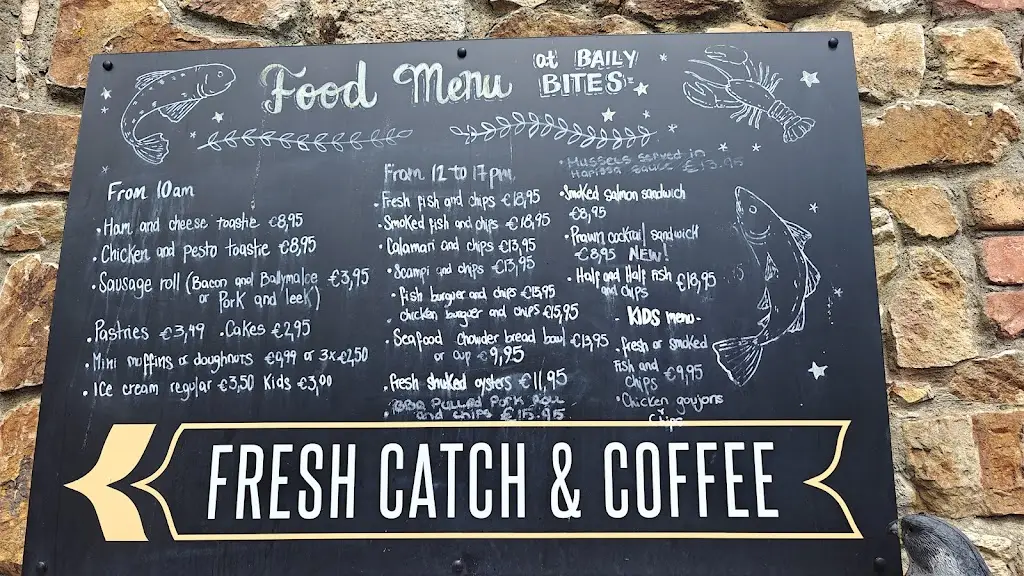 Food Menu at BAILY BITES
From 10am
• Ham and cheese toastie €8,95
• Chicken and pesto toastie €8,95
• Sausage roll (Bacon and Ballymaloe €3,95
or Pork and leek)
• Pastries €3,49 • Cakes €2,95
• Mini muffins or doughnuts or 3x€2,50
• Ice cream regular €3,50 Kids €3,00
From 12 to 17pm
• Fresh fish and chips €18,95
• Smoked fish and chips €18,95
• Calamari and chips €13,95
• Scampi and chips €13,95
• Fish burguer and chips €15,95
• chicken burguer and chips €15,95
• Seafood chowder bread bowl €13,95
or cup €9,95
• Fresh shuked oysters €11,95
• BBQ Pulled Pork Roll
and chips €15.95
• Mussels served in
Harissa sauce €13.95
• Smoked salmon sandwich
€8,95
• Prawn cocktail sandwich
€8,95 NEW!
• Half and Half fish €18,95
and chips
KIDS menu-
• fresh or smoked
Fish and
chips €9,95
• Chicken goujons
chips
FRESH CATCH & COFFEE